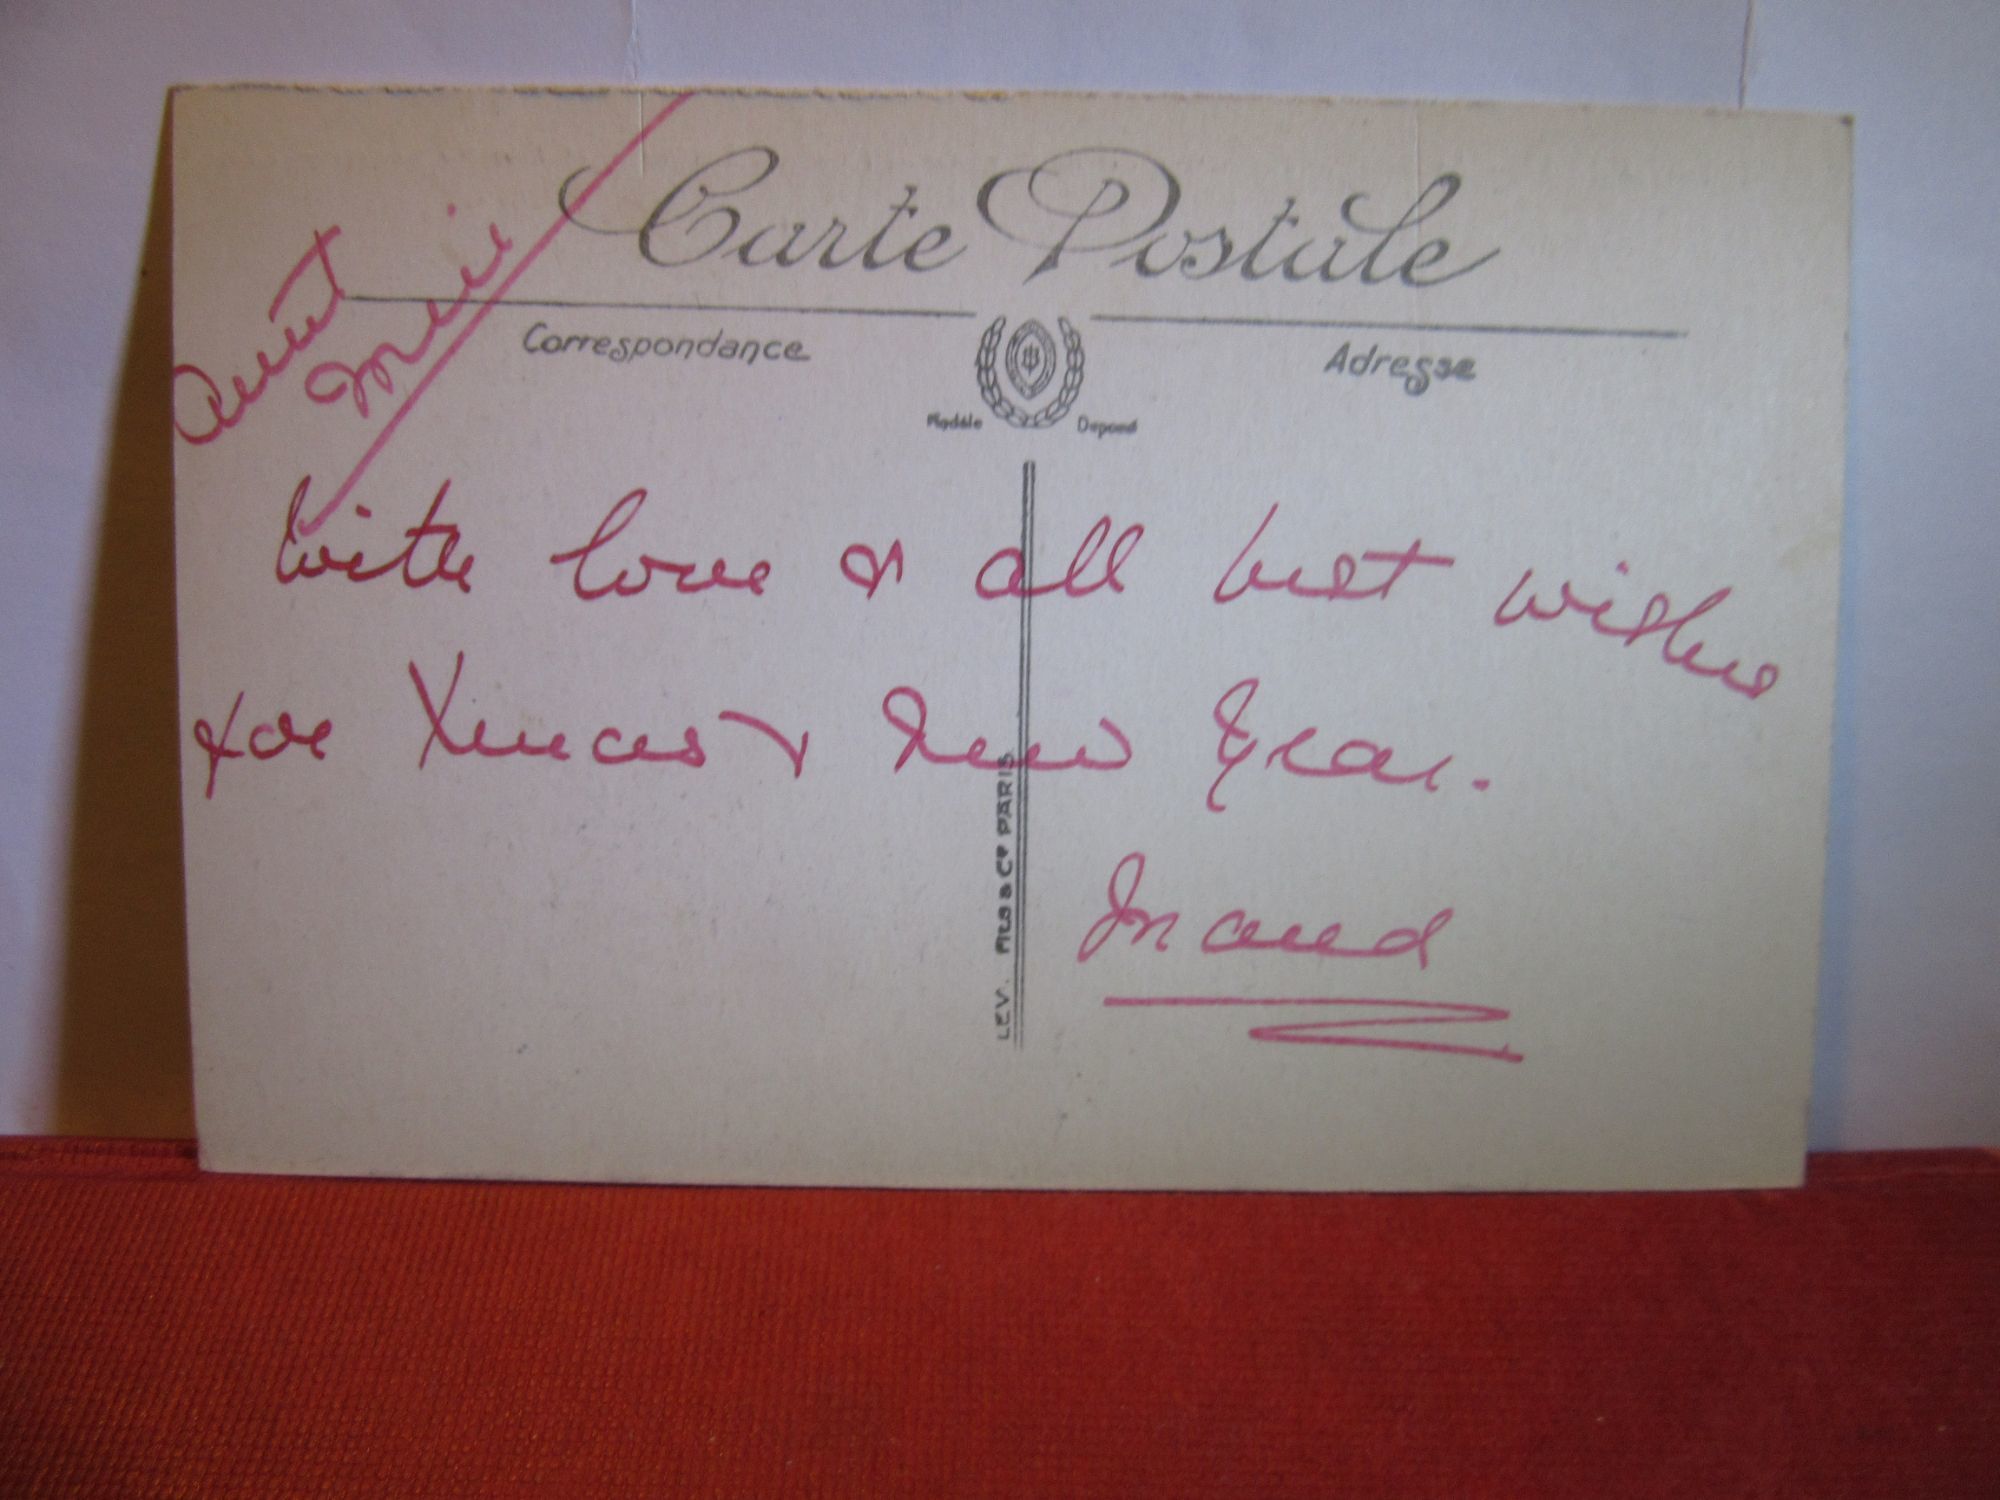 Carte Postale
Correspondance
Adresse
Modèle Déposé
Aunt
With love & all best wishes
for Xmas & New Year.
Maud
LEV. FILS & Cº PARIS